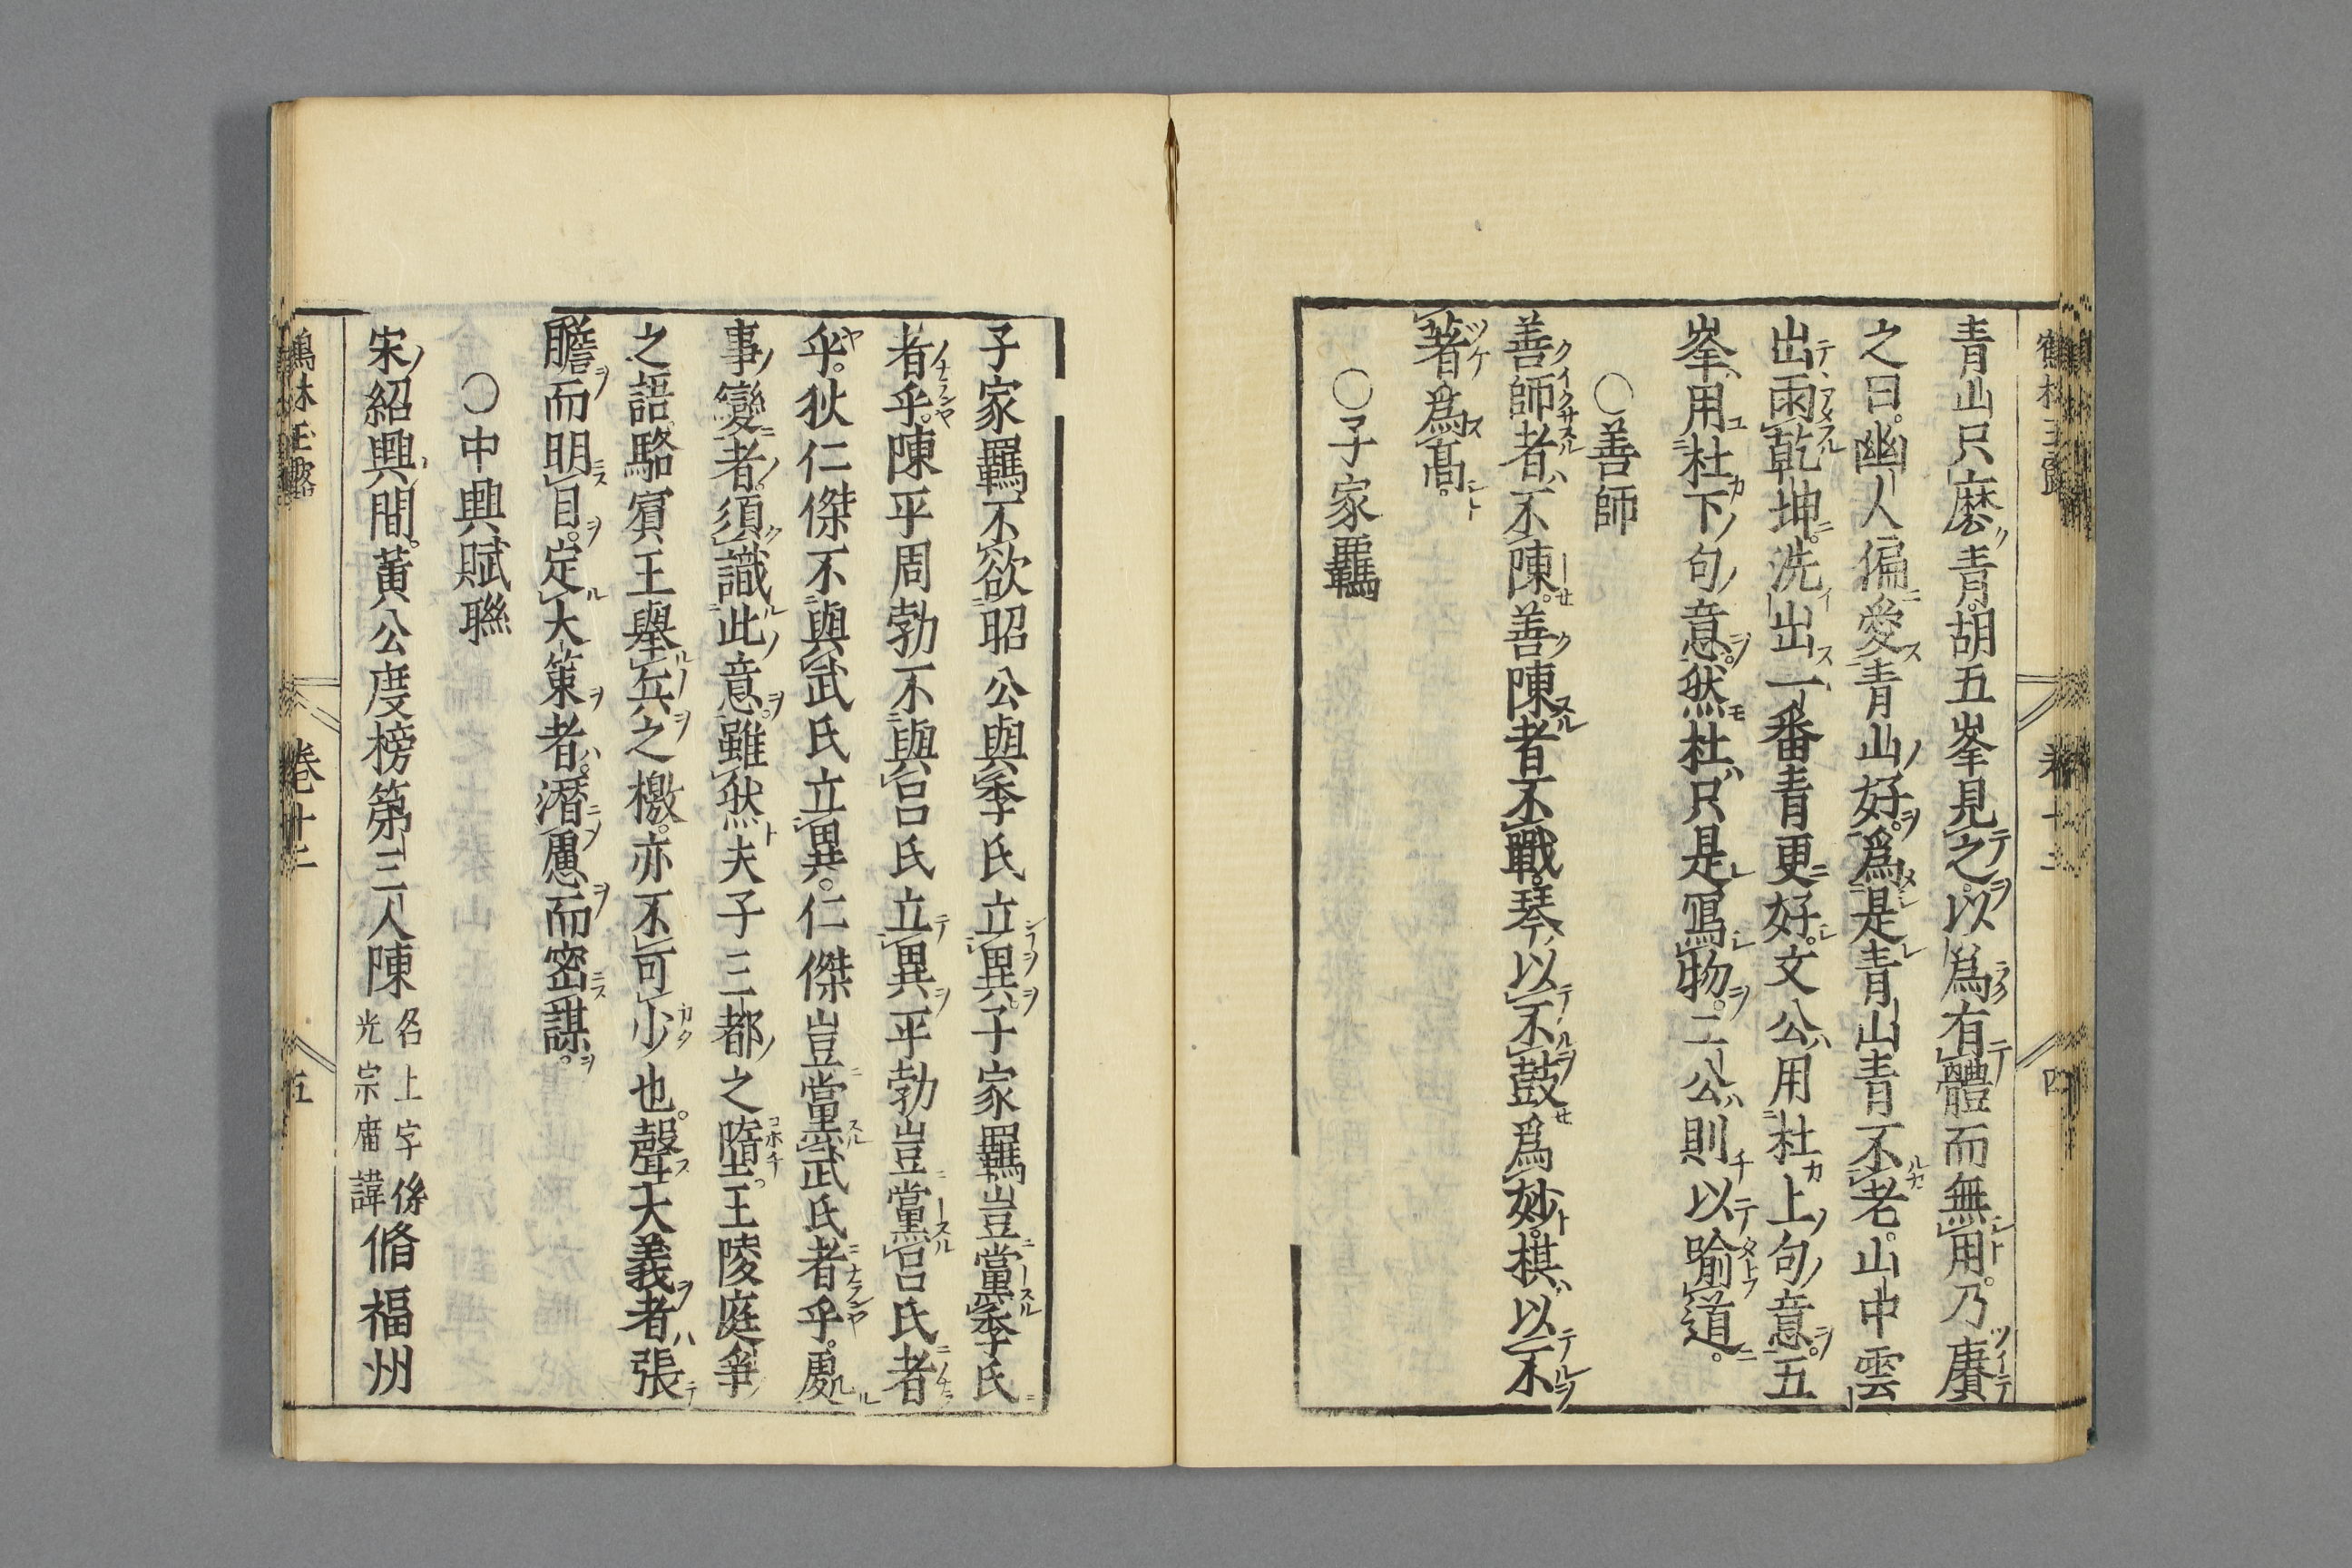 青山只麽青。胡五峯見之。以爲有體而無用。乃賡
之曰。幽人偏愛青山好。爲是青山青不老。山中雲
出雨乾坤。洗出一番青更好。文公用杜上句意。五
峯用杜下句意。然杜只是寫物。二公則以喻道。
〇善師
善師者不陳。善陳者不戰。琴以不鼓爲妙。棋以不
著爲高。
〇子家羈
子家羈不欲昭公與季氏立異。子家羈豈黨季氏
者乎。陳平周勃不與呂氏立異。平勃豈黨呂氏者
乎。狄仁傑不與武氏立異。仁傑豈黨武氏者乎。處
事變者。須識此意。雖然夫子三都之墮。王陵庭爭
之語。駱賓王舉兵之檄。亦不可少也。聲大義者。張
膽而明目。定大策者。潛慮而密謀。
〇中興賦聯
宋紹興間。黃公度榜第三人陳
名上字係
光宗廟諱
脩福州
鶴林玉露 卷十二 四
鶴林玉露 卷十二 五